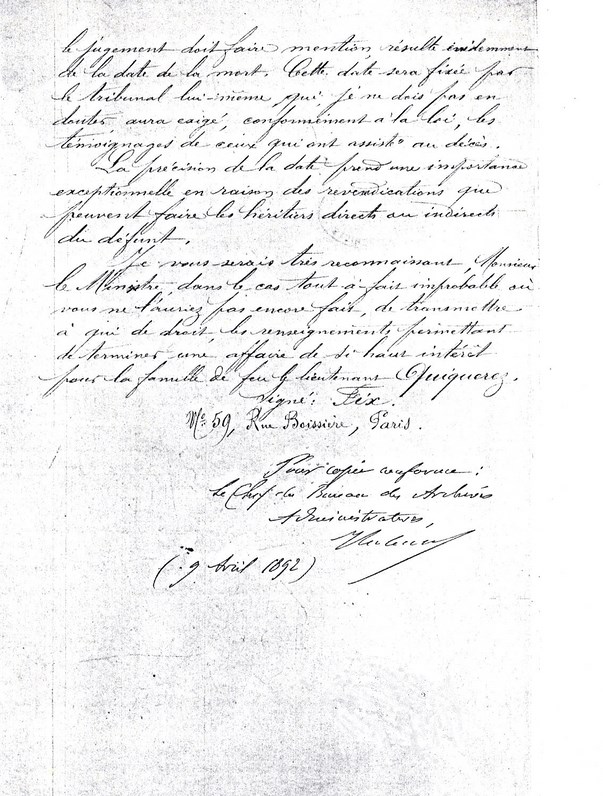 le jugement doit faire mention résulte évidemment
de la date de la mort. Cette date sera fixée par
le tribunal lui-même qui, je ne dois pas en
douter aura exigé, conformément à la loi, les
témoignages de ceux qui ont assisté au décès.
La précision de la date prend une importance
exceptionnelle en raison des revendications que
peuvent faire les héritiers directs ou indirects
du défunt.
Je vous serais très reconnaissant, Monsieur
le Ministre, dans le cas tout à fait improbable où
vous ne l'auriez pas encore fait, de transmettre
à qui de droit, les renseignements permettant
de terminer une affaire de si haut intérêt
pour la famille de feu le lieutenant Quiquerez.
Signé: Fix.
N° 59, Rue Boissière, Paris.
Pour copie conforme:
Le Chef du Bureau des Archives
Administratives,
(9 Avril 1892)